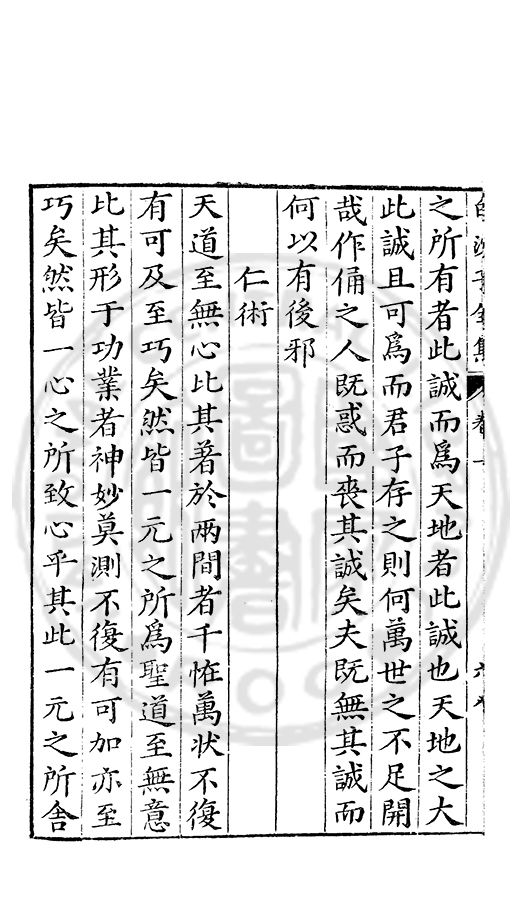 之所有者此誠而爲天地者此誠也天地之大
此誠且可爲而君子存之則何萬世之不足開
哉作俑之人既惑而喪其誠矣夫既無其誠而
何以有後邪
仁術
天道至無心比其著於兩間者千恠萬状不復
有可及至巧矣然皆一元之所爲聖道至無意
比其形于功業者神妙莫測不復有可加亦至
巧矣然皆一心之所致心乎其此一元之所舍